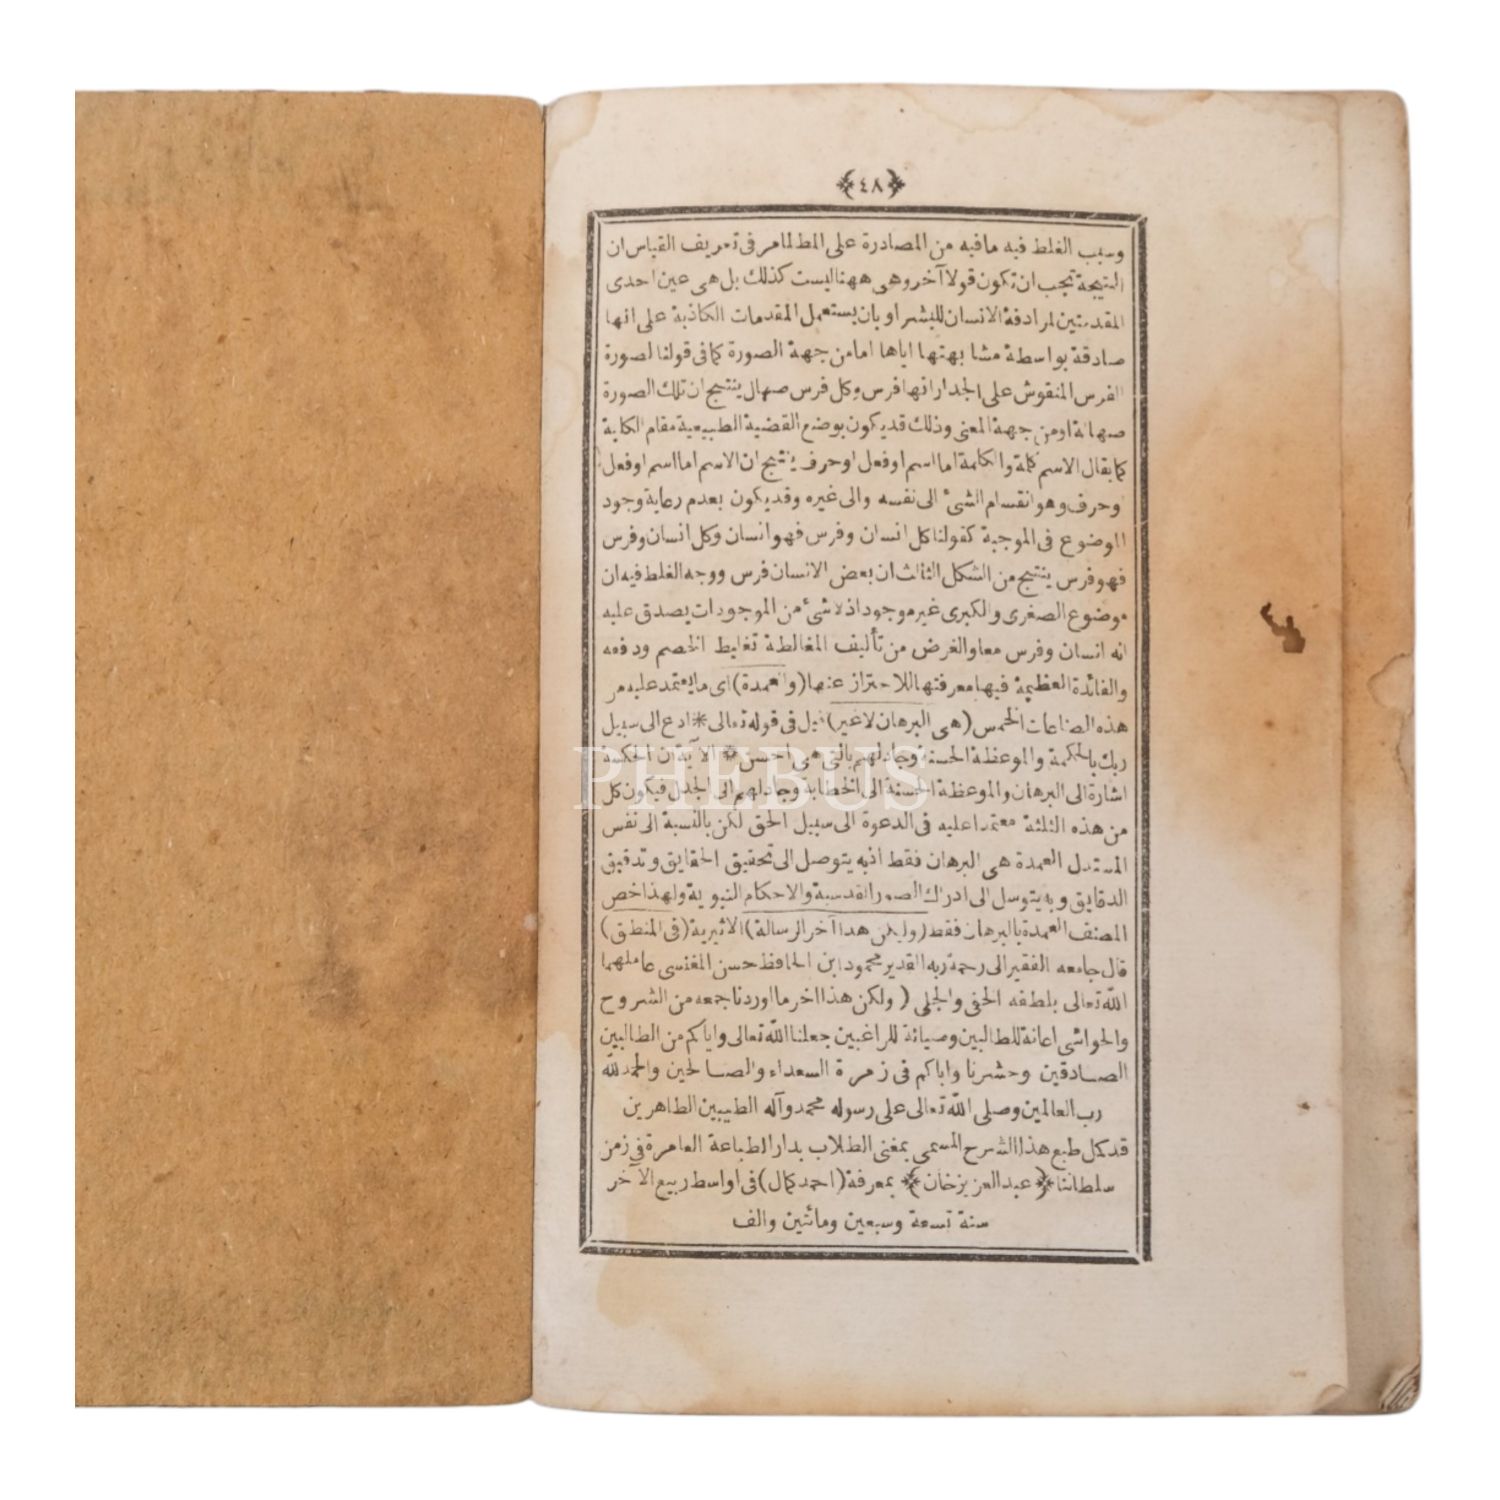 ٤٨
وسبب الغلط فيه مافيه من المصادرة على المط لمامر فى تعريف القياس ان
النتيجة تجب ان تكون قولا آخر وهى ههنا ليست كذلك بل هى عين احدى
المقدمتين لمرادفة الانسان للبشر او بان يستعمل المقدمات الكاذبة على انها
صادقة بواسطة مشابهتها اياها اما من جهة الصورة كما فى قولنا لصورة
الفرس المنقوش على الجدار انها فرس وكل فرس صهال ينتج ان تلك الصورة
صهالة او من جهة المعنى وذلك قد يكون بوضع القضية الطبيعية مقام الكلية
كما يقال الاسم كلمة والكلمة اما اسم او فعل او حرف ينتج ان الاسم اما اسم او فعل
او حرف وهو انقسام الشئ الى نفسه والى غيره وقد يكون بعدم رعاية وجود
الموضوع فى الموجبة كقولنا كل انسان وفرس فهو انسان وكل انسان وفرس
فهو فرس ينتج من الشكل الثالث ان بعض الانسان فرس ووجه الغلط فيه ان
موضوع الصغرى والكبرى غير موجود اذ لا شئ من الموجودات يصدق عليه
انه انسان وفرس معا والغرض من تأليف المغالطة تغليط الخصم ودفعه
والفائدة العظيمة فيها معرفتها للاحتراز عنها (والعمدة) اى ما يعتمد عليه من
هذه الصناعات الخمس (هى البرهان لا غير) قيل فى قوله تعالى * ادع الى سبيل
ربك بالحكمة والموعظة الحسنة وجادلهم بالتى هى احسن * الآية ان الحكمة
اشارة الى البرهان والموعظة الحسنة الى الخطابة وجادلهم الى الجدل فيكون كل
من هذه الثلثة معتمدا عليه فى الدعوة الى سبيل الحق لكن بالنسبة الى نفس
المستدل العمدة هى البرهان فقط اذ به يتوصل الى تحقيق الحقايق وتدقيق
الدقايق وبه يتوسل الى ادراك الصور القدسية والاحكام النبوية ولهذا خص
المصنف العمدة بالبرهان فقط (وليكن هذا آخر الرسالة) الاثيرية (فى المنطق)
قال جامعه الفقير الى رحمة ربه القدير محمود ابن الحافظ حسن المغنسى عاملهما
الله تعالى بلطفه الخفى والجلى ( ولكن هذا اخر ما اوردنا جمعه من الشروح
والحواشى اعانة للطالبين وصيانة للراغبين جعلنا الله تعالى واياكم من الطالبين
الصادقين وحشرنا واياكم فى زمرة السعداء والصالحين والحمد لله
رب العالمين وصلى الله تعالى على رسوله محمد وآله الطيبين الطاهرين
قد كمل طبع هذا الشرح المسمى بمغنى الطلاب بدار الطباعة العامرة فى زمن
سلطاننا ﴿ عبد العزيز خان ﴾ بمعرفة (احمد كمال) فى اواسط ربيع الآخر
سنة تسعة وسبعين ومائتين والف
PHEBUS